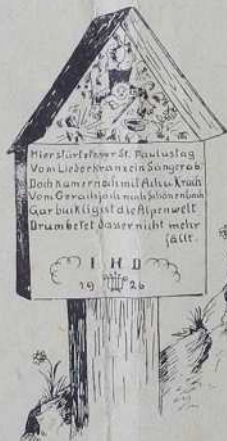 Hier stürtet ener St. Paulustag
Vom Liederkranz ein Sänger ab.
Doch kam er noch mit Ach u. Krach
Vom Gerachjoch nach Schönenbach
Gar buklig ist die Alpenwelt
Drum betet das er nicht mehr
fällt.
I H D
1926